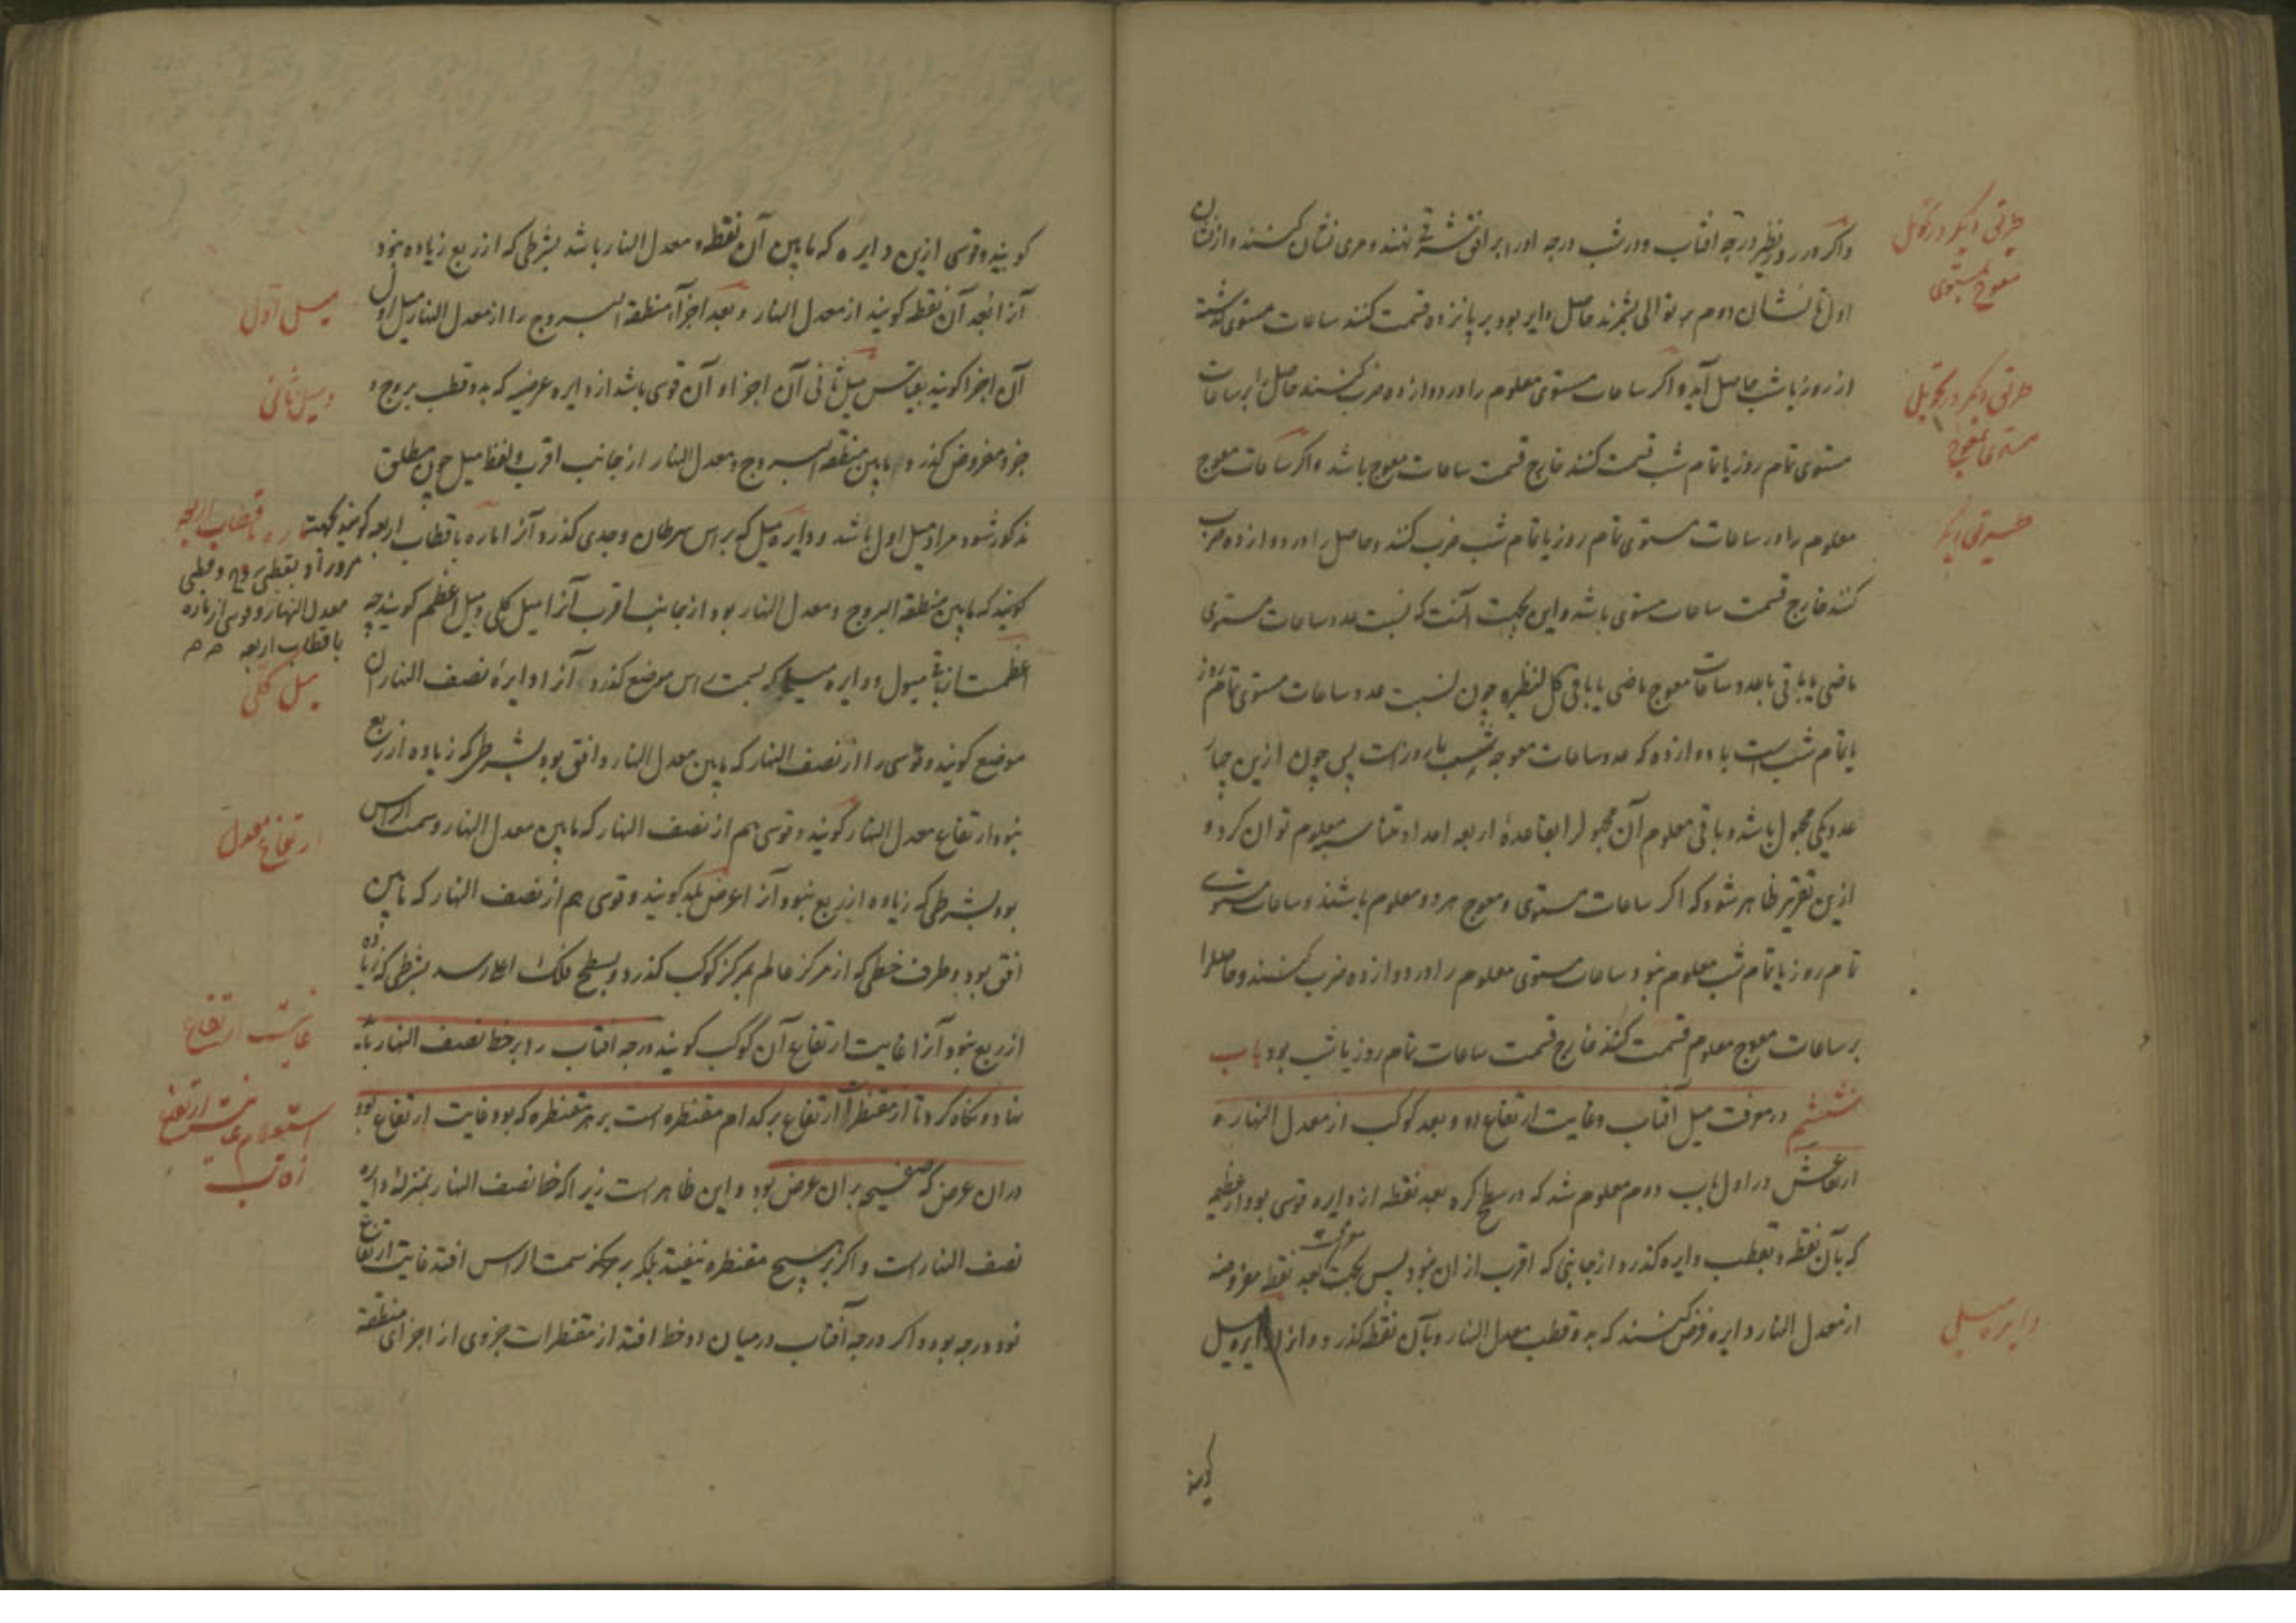 واگر در روز نظیر درجه افتاب و در شب درجه او را بر افق شرقی نهند و مری نشان کنند و از نشان
اول تا نشان دوم بر توالی بشمرند حاصل دایر بود بر پانزده قسمت کنند ساعات مستوی گذشته
از روز یا شب حاصل آید و اگر ساعات مستوی معلوم را در دوازده ضرب کنند حاصل را بر ساعات
مستوی تمام روز یا تمام شب قسمت کنند خارج قسمت ساعات معوج باشد و اگر ساعات معوج
معلوم را در ساعات مستوی تمام روز یا تمام شب ضرب کنند و حاصل را در دوازده ضرب
کنند خارج قسمت ساعات مستوی باشد و این بجهت آنست که نسبت عدد ساعات مستوی
ماضی یا باقی با عدد ساعات معوج ماضی یا باقی کل لنظیره چون نسبت عدد ساعات مستوی تمام روز
یا تمام شب است با دوازده که عدد ساعات معوجه شب یا روز است پس چون ازین چار
عدد یکی مجهول باشد و باقی معلوم آن مجهول را بقاعدهٔ اربعه اعداد متناسبه معلوم توان کرد و
ازین تقریر ظاهر شود که اگر ساعات مستوی و معوج هر دو معلوم باشند و ساعات مستوی
تمام روز یا تمام شب معلوم نبود ساعات مستوی معلوم را در دوازده ضرب کنند و حاصل را
بر ساعات معوج معلوم قسمت کنند خارج قسمت ساعات تمام روز یا شب بود باب
ششم در معرفت میل آفتاب و غایت ارتفاع او و بعد کوکب از معدل النهار و
ارتفاعش در اول باب دوم معلوم شد که در سطح کره بعد نقطه از دایره قوسی بود از عظیمه
که بآن نقطه و بقطب دایره گذرد از جانبی که اقرب از ان نبود پس بجهت معرفت بعد نقطه مفروضه
از معدل النهار دایره فرض کنند که بدو قطب معدل النهار و بآن نقطه گذرد و آنرا دایره میل
گویند
طریقی دیگر در تحویل
معوج بمستوی
طریقی دیگر در تحویل
مستوی بمعوج
طریقی دیگر
دایره میل
گویند و قوسی ازین دایره که ما بین آن نقطه و معدل النهار باشد بشرطی که از ربع زیاده نبود
آنرا بعد آن نقطه گویند از معدل النهار و بعد اجزاء منطقة البروج را از معدل النهار میل اول
آن اجزا گویند بقیاس میل ثانی آن اجزا و آن قوسی باشد از دایره عرضیه که بدو قطب بروج و
جزو مفروض گذرد و ما بین منطقة البروج و معدل النهار از جانب اقرب و لفظ میل چون مطلق
مذکور شود مراد میل اول باشد و دایره میل که براس سرطان و جدی گذرد آنرا ماره باقطاب اربعه گویند بجهت
گویند که ما بین منطقة البروج و معدل النهار بود از جانب اقرب آنرا میل کلی و میل اعظم گویند چه
اعظمست از باقی میول و دایره میل که بسمت راس موضع گذرد آنرا دایرهٔ نصف النهار آن
موضع گویند و قوسی را از نصف النهار که ما بین معدل النهار و افق بود بشرطی که زیاده از ربع
نبود ارتفاع معدل النهار گویند و قوسی هم از نصف النهار که ما بین معدل النهار و سمت الراس
بود بشرطی که زیاده از ربع نبود آنرا عرض بلد گویند و قوسی هم از نصف النهار که ما بین
افق بود و طرف خطی که از مرکز عالم بمرکز کوکب گذرد و بسطح فلک اعلا رسد بشرطی که زیاده
از ربع نبود آنرا غایت ارتفاع آن کوکب گویند درجه افتاب را بر خط نصف النهار باید
نهاد و نگاه کرد تا از مقنطرات ارتفاع بر کدام مقنطره است بر هر مقنطره که بود غایت ارتفاع بود
در ان عرض که صفیحه بر ان عرض بود و این ظاهر است زیرا که خط نصف النهار بمنزلهٔ دایره
نصف النهار است و اگر بر هیچ مقنطره نیفتد بلکه بر مرکز سمت الراس افتد غایت ارتفاع
نود درجه بود و اگر درجه آفتاب در میان دو خط افتد از مقنطرات جزوی از اجزای منطقه
میل اول
و میل ثانی
ماره باقطاب اربعه
مرور او بقطبی بروج و قطبی
معدل النهار و قوسی از ماره
باقطاب اربعه
میل کلی
ارتفاع معدل
غایت ارتفاع
استعلام غایت ارتفاع
آفتاب